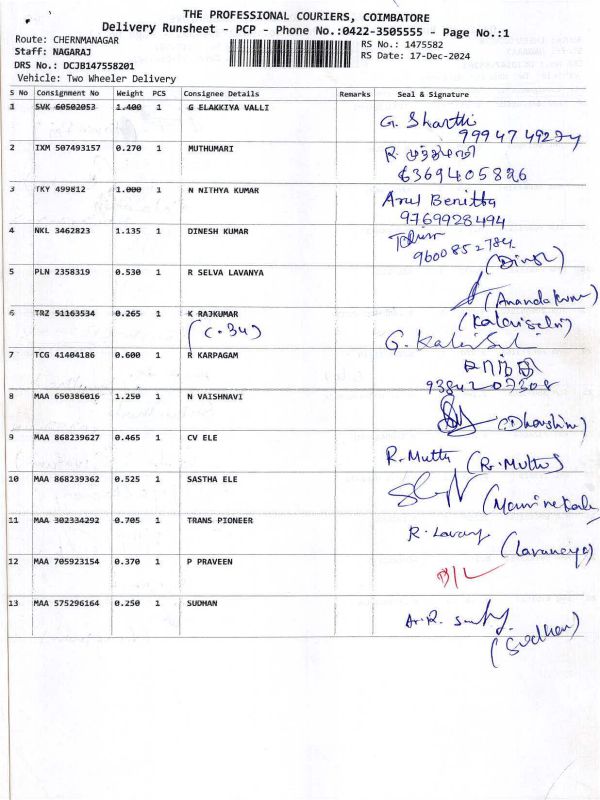 THE PROFESSIONAL COURIERS, COIMBATORE
Delivery Runsheet - PCP - Phone No.:0422-3505555 - Page No.:1
Route: CHERNMANAGAR
RS No.: 1475582
Staff: NAGARAJ
RS Date: 17-Dec-2024
DRS No.: DCJB147558201
Vehicle: Two Wheeler Delivery
S No Consignment No Weight PCS Consignee Details Remarks Seal & Signature
1 SVK 60502053 1.400 1 G ELAKKIYA VALLI
G. Sharthi
9994749274
2 IXM 507493157 0.270 1 MUTHUMARI
R. முத்துமாரி
6369405896
3 TKY 499812 1.000 1 N NITHYA KUMAR
Arul Benitta
9769928494
4 NKL 3462823 1.135 1 DINESH KUMAR
9600852784
5 PLN 2358319 0.530 1 R SELVA LAVANYA
(Anandakumar)
6 TRZ 51163534 0.265 1 K RAJKUMAR
(C.34)
(Kalaiselvi)
G. KalaiSel
7 TCG 41404186 0.600 1 R KARPAGAM
9384207308
8 MAA 650386016 1.250 1 N VAISHNAVI
(Dharshini)
9 MAA 868239627 0.465 1 CV ELE
R. Muttu (R. Muthu)
10 MAA 868239362 0.525 1 SASTHA ELE
11 MAA 302334292 0.705 1 TRANS PIONEER
R. Lavany
(Lavanaya)
12 MAA 705923154 0.370 1 P PRAVEEN
D/L
13 MAA 575296164 0.250 1 SUDHAN
(Sudhan)